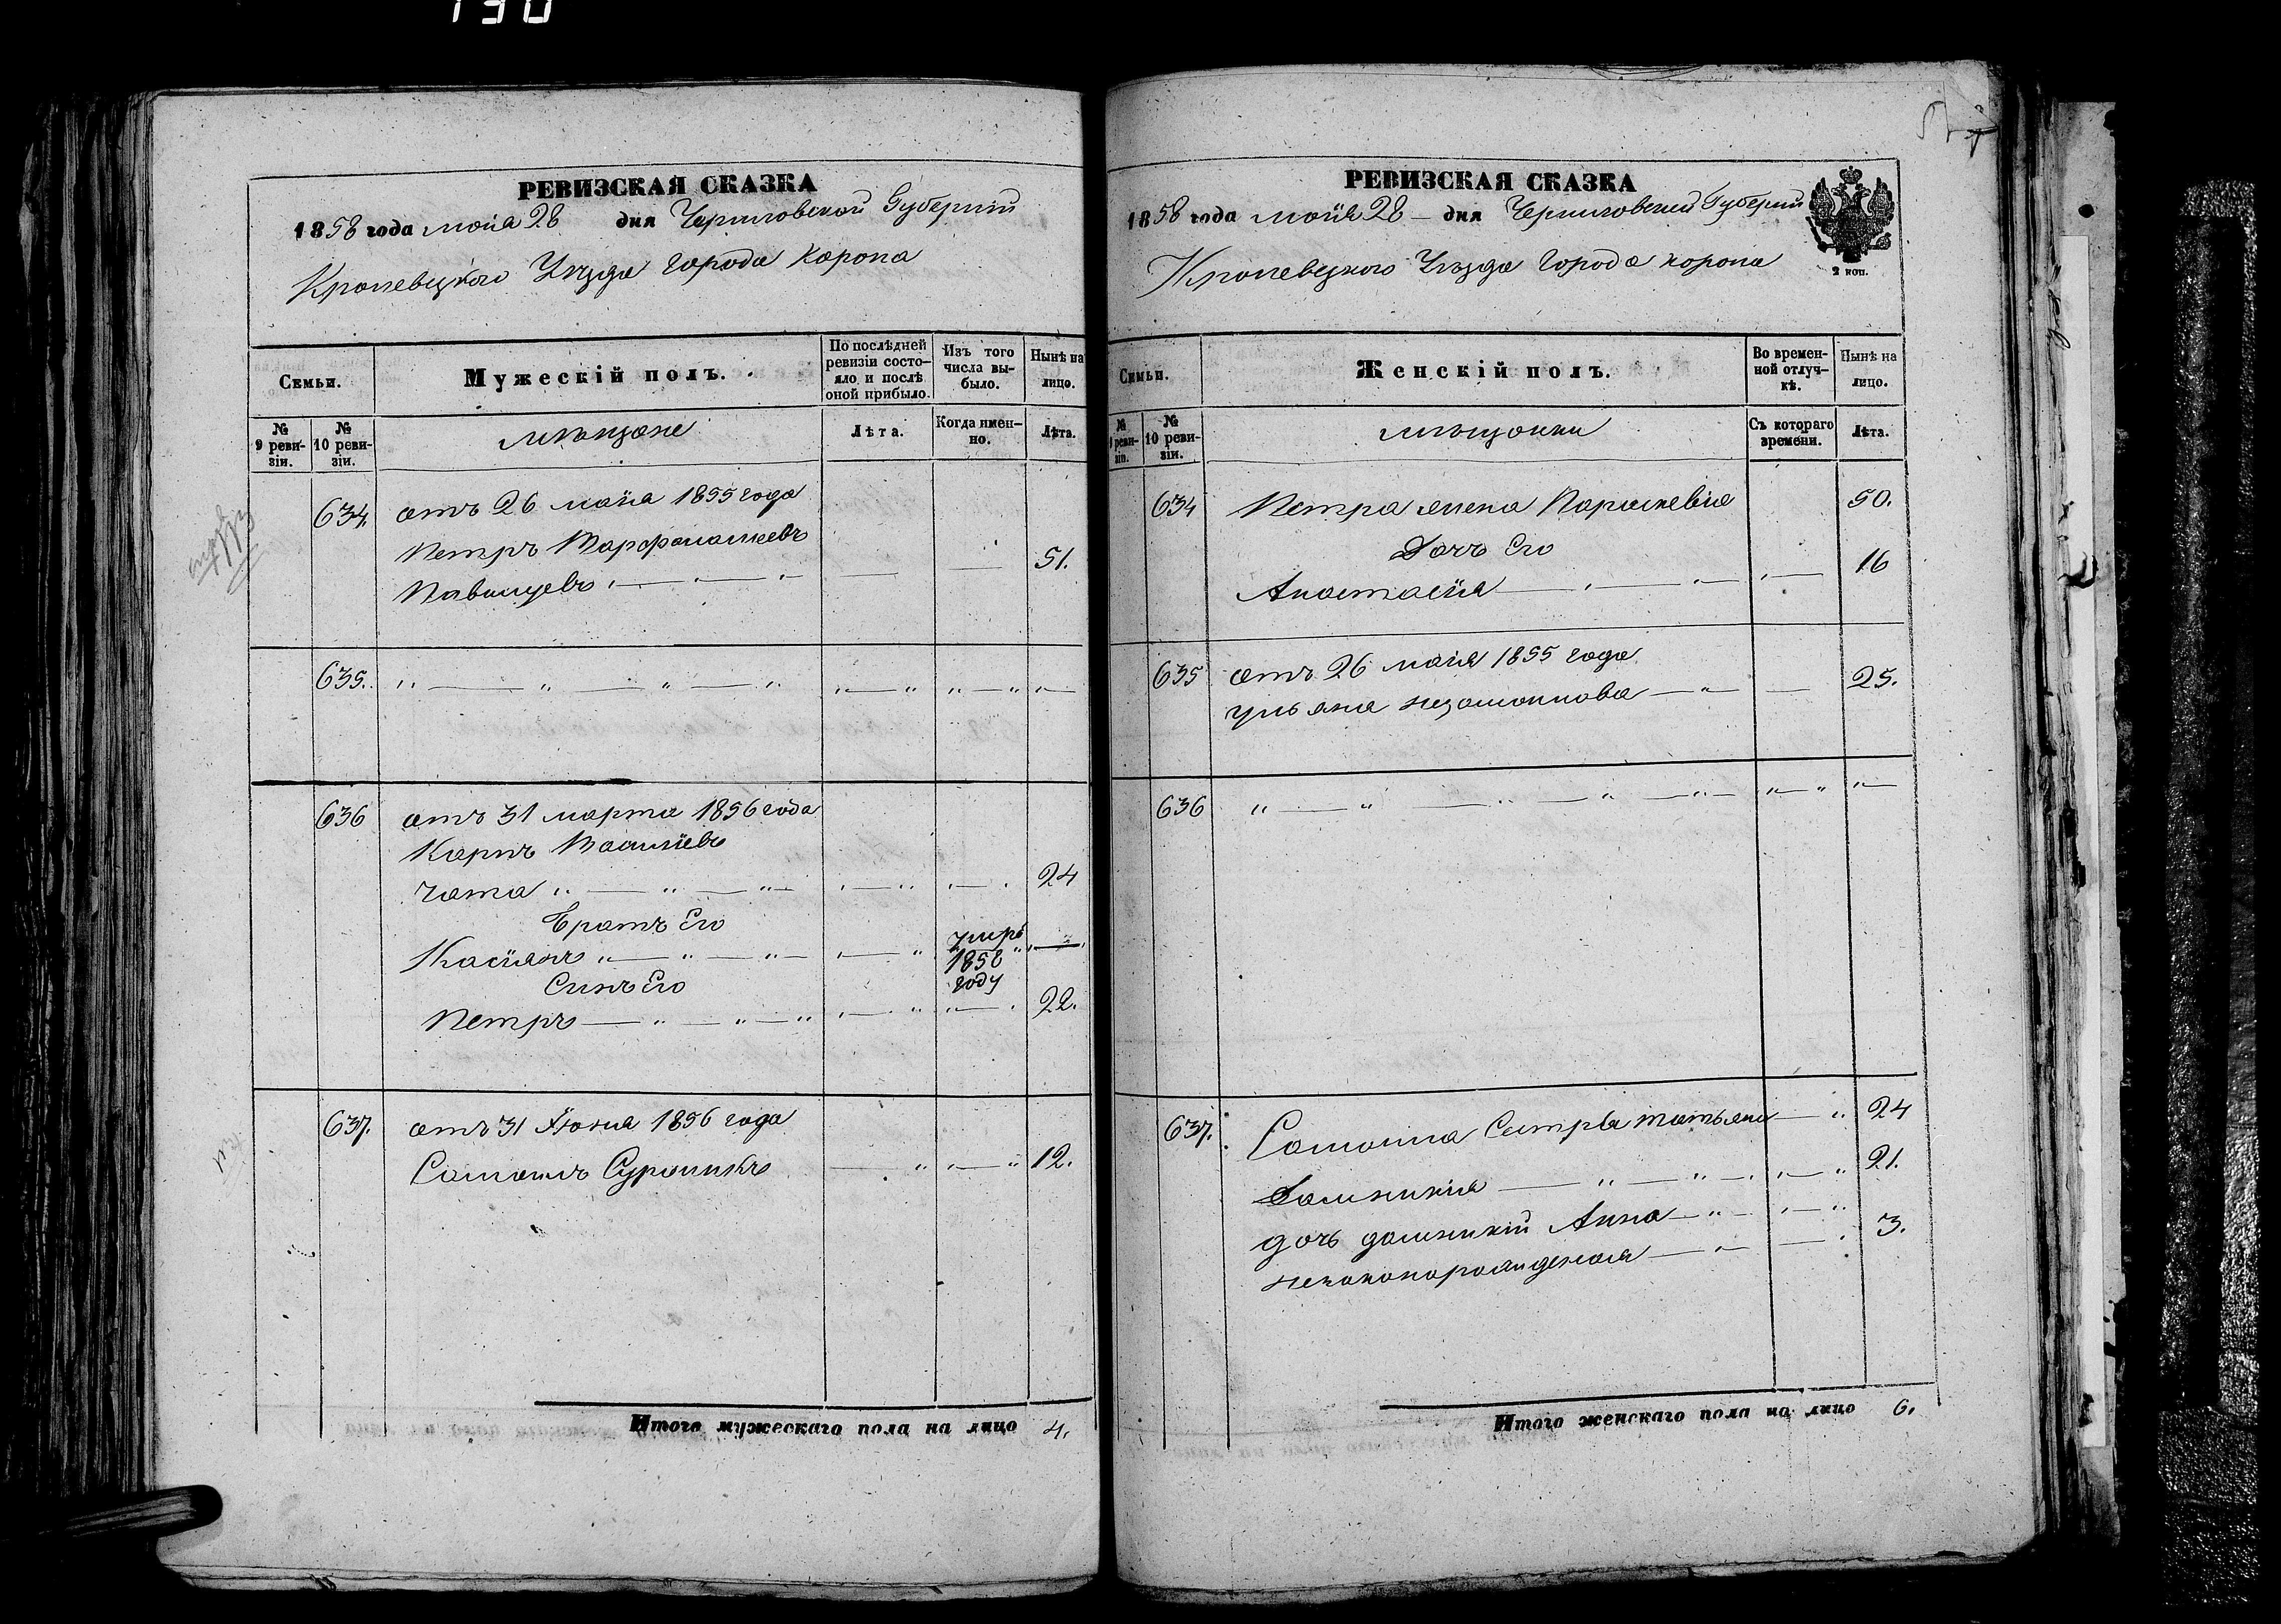 130
РЕВИЗСКАЯ СКАЗКА
1858 года мая 28 дня Черниговской Губернии
Кролевецкого Уезда города Коропа
Семьи.
Мужескій полъ.
По послѣдней ревизіи состояло и послѣ оной прибыло.
Изъ того числа выбыло.
Нынѣ на лицо.
№ 9 ревизіи.
№ 10 ревизіи.
мѣщане
Лѣта.
Когда именно.
Лѣта.
634. отъ 26 маия 1855 года
Петръ Варфоламеевъ
51.
635.
636 отъ 31 марта 1856 года
Карпъ Васильевъ
Чата 24
Братъ Его
Касиянъ умре 1858 году
Сынъ Его
Петръ 22.
637. отъ 31 Июня 1856 года
12.
Итого мужескаго пола на лицо 4.
РЕВИЗСКАЯ СКАЗКА
1858 года маия 28 дня Черниговской Губернии
2 коп.
Кролевецкого Уезда Города коропа
Семьи.
Женскій полъ.
Во временной отлучкѣ.
Нынѣ на лицо.
№ 9 ревизіи.
№ 10 ревизіи.
мѣщанки
Съ котораго времени.
Лѣта.
634 Петра жена Параскевия 50.
Дочь Его
Анастасия 16
635 отъ 26 маия 1855 года
ульяна 25.
636
637. Самоила Сестры татьяна 24
Домникия 21.
дочь домникии Анна
незаконорожденая 3.
Итого женскаго пола на лицо 6.